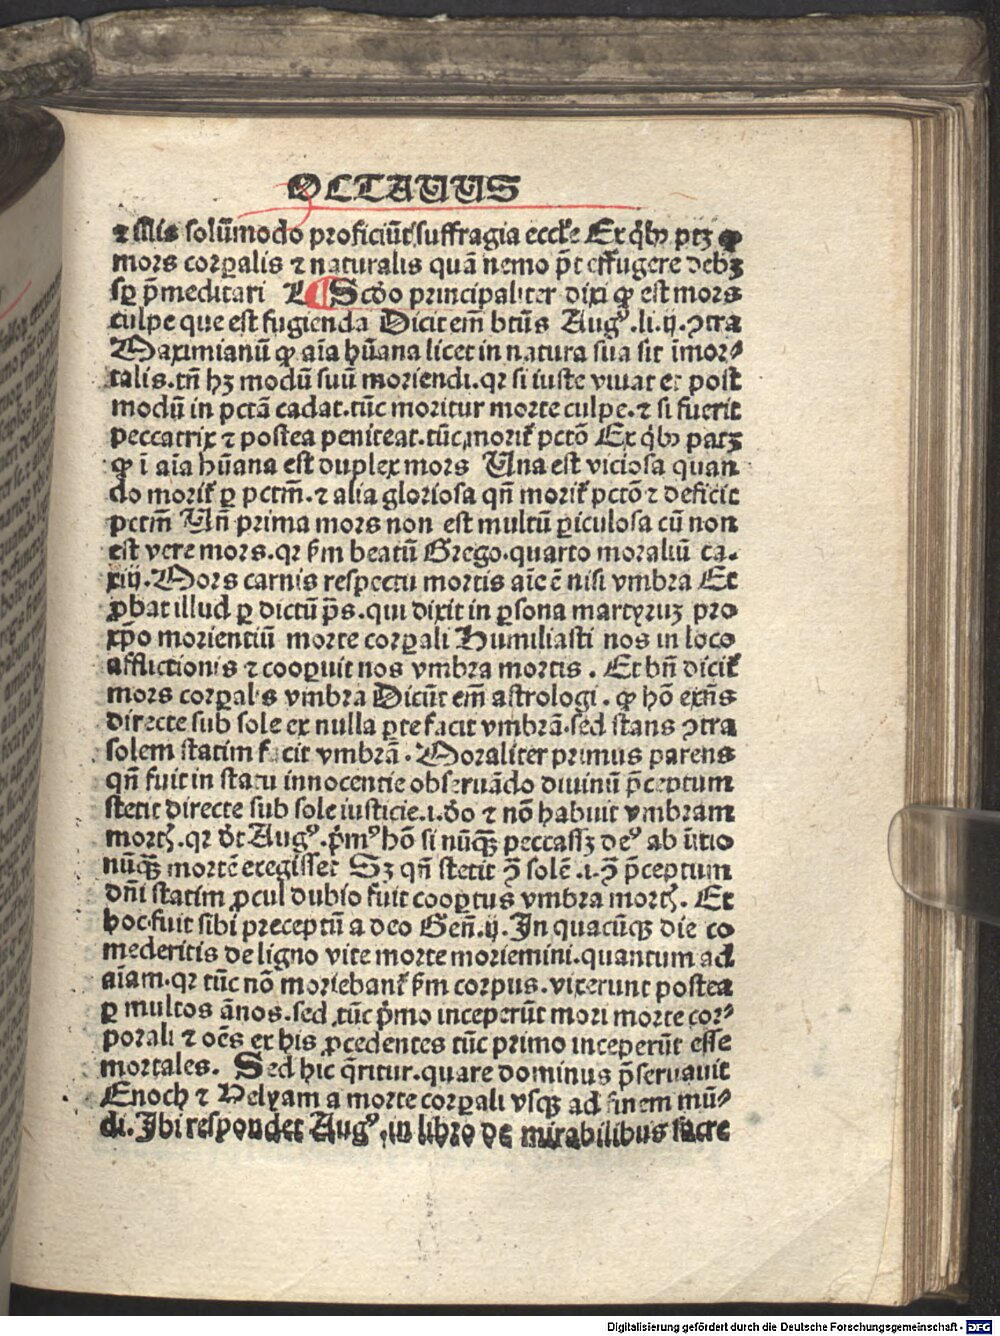 OCTAUUS
⁊ illis solūmodo proficiūt suffragia eccl'e Ex q̇bꝰ ptꝫ ꝙ
mors corꝑalis ⁊ naturalis quā nemo p̄t effugere debꝫ
sꝑ p̄meditari ¶ Scd̄o principaliter dixi ꝙ est mors
culpe que est fugienda Dicit em̄ btūs Augꝰ.li.ij.ꝯtra
Maximianū ꝙ aīa hūana licet in natura sua sit īmor⸗
talis.tn̄ hꝫ modū suū moriendi.qr si iuste viuat et post
modū in pctā cadat.tūc moritur morte culpe.⁊ si fuerit
peccatrix ⁊ postea peniteat.tūc morit᷑ pctō Ex q̇bꝰ patꝫ
ꝙ ī aīa hūana est duplex mors Una est viciosa quan
do morit᷑ ꝑ pctm̄.⁊ alia gloriosa qn̄ morit᷑ pctō ⁊ deficit
pctm̄ Un̄ prima mors non est multū ꝑiculosa cū non
est vere mors.qr ẜm beatū Grego.quarto moraliū ca.
xiij.Mors carnis respectu mortis aīe ē nisi vmbra Et
ꝓbat illud ꝑ dictū p̄s.qui dixit in ꝑsona martyruꝫ pro
xp̄o morientiū morte corꝑali Humiliasti nos in loco
afflictionis ⁊ cooꝑuit nos vmbra mortis . Et bn̄ dicit᷑
mors corꝑalis vmbra Dicūt em̄ astrologi . ꝙ hō exn̄s
directe sub sole ex nulla ꝑte facit vmbrā.sed stans ꝯtra
solem statim facit vmbrā . Moraliter primus parens
qn̄ fuit in statu innocentie obseruādo diuinū p̄ceptum
stetit directe sub sole iusticie.i.d̄o ⁊ nō habuit vmbram
mortꝭ.qr d̄t Augꝰ.p̄mꝰ hō si nūqꝫ peccassꝫ deꝰ ab īitio
nūqꝫ mortē exegisset Sꝫ qn̄ stetit ꝯ̄ solē .i.ꝯ̄ p̄ceptum
dn̄i statim ꝓcul dubio fuit cooꝑtus vmbra mortꝭ. Et
hoc fuit sibi preceptū a deo Gen̄.ij.In quacūqꝫ die co
mederitis de ligno vite morte moriemini.quantum ad
aīam.qr tūc nō moriebant᷑ ẜm corpus.vixerunt postea
ꝑ multos ānos.sed tūc p̄mo inceperūt mori morte cor⸗
porali ⁊ oēs ex his ꝓcedentes tūc primo inceperūt esse
mortales. Sed hic q̄ritur.quare dominus p̄seruauit
Enoch ⁊ Helyam a morte corꝑali vsqꝫ ad finem mū⸗
di.Ibi respondet Augꝰ.in libro de mirabilibus sacre
Digitalisierung gefördert durch die Deutsche Forschungsgemeinschaft - DFG